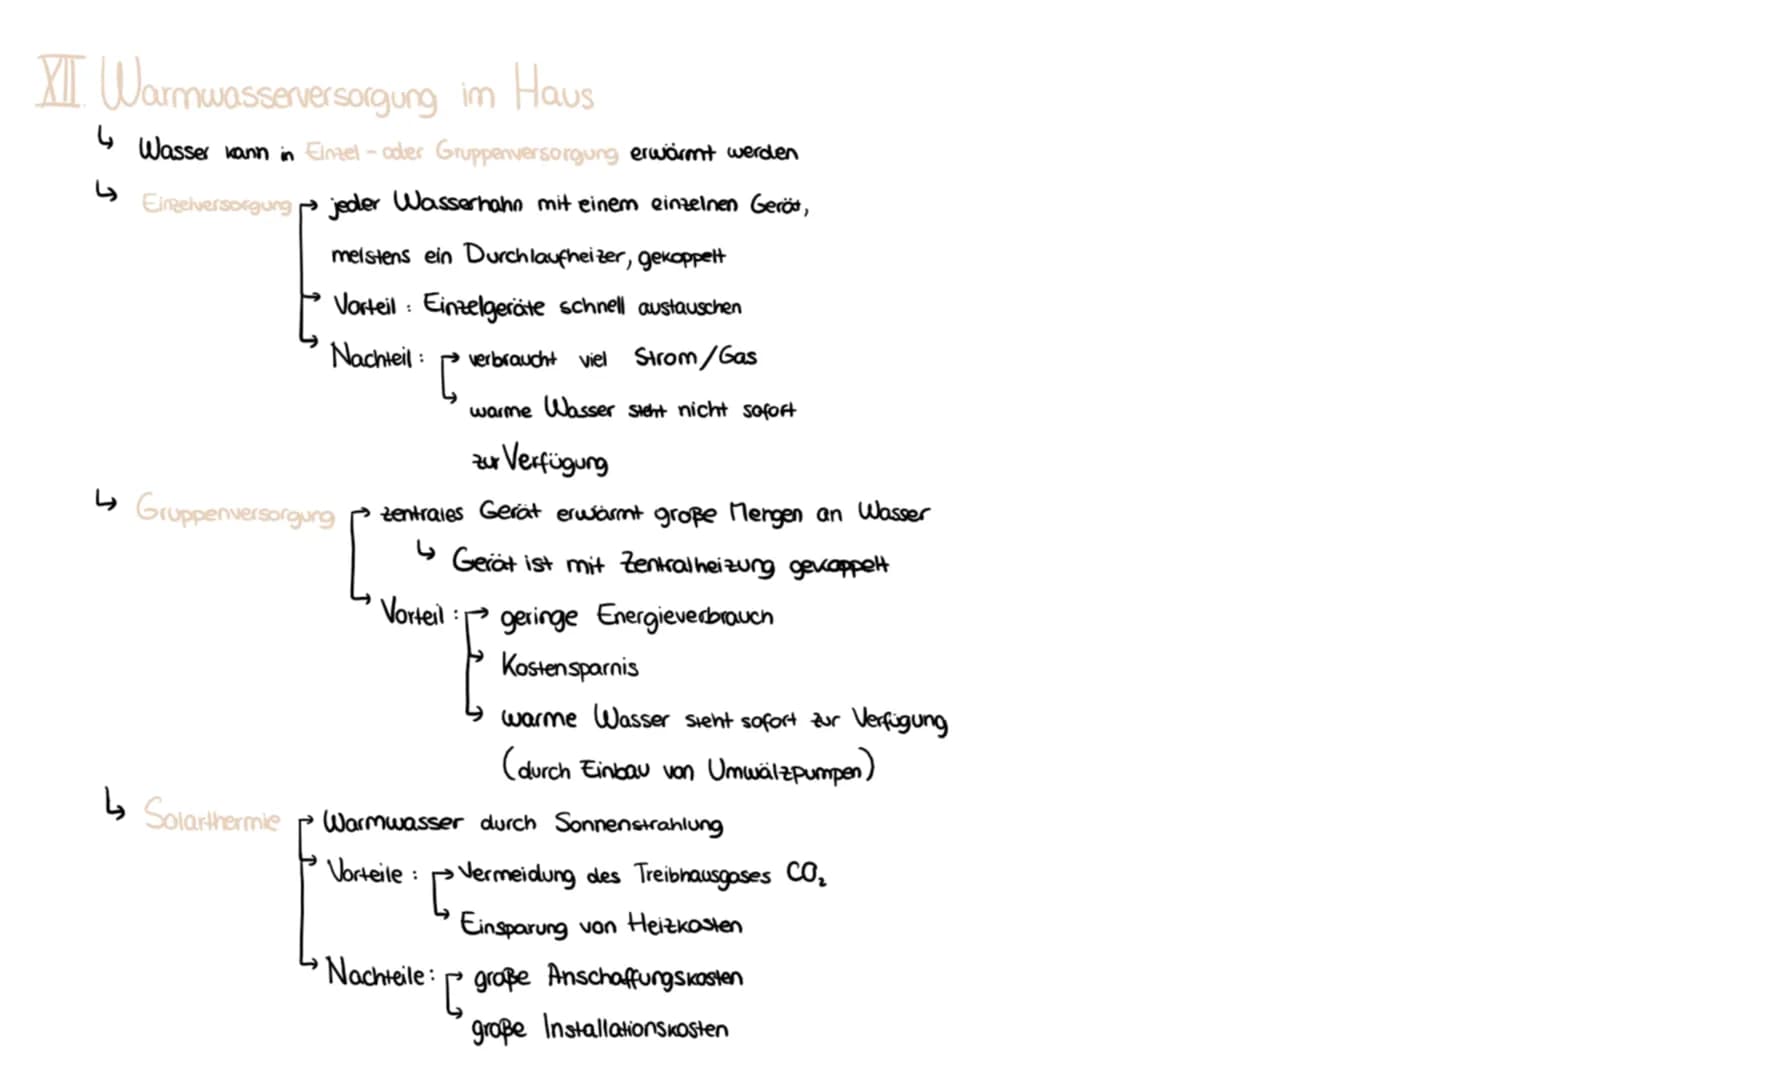 XII Warmwasserversorgung im Haus
↳ Wasser kann in Einzel- oder Gruppenversorgung erwärmt werden
↳ Einzelversorgung → jeder Wasserhahn mit einem einzelnen Gerät,
meistens ein Durchlaufheizer, gekoppelt
→ Vorteil: Einzelgeräte schnell austauschen
↳ Nachteil: → verbraucht viel Strom/Gas
↳ warme Wasser steht nicht sofort
zur Verfügung
↳ Gruppenversorgung → zentrales Gerät erwärmt große Mengen an Wasser
↳ Gerät ist mit Zentralheizung gekoppelt
↳ Vorteil: → geringe Energieverbrauch
→ Kostensparnis
↳ warme Wasser steht sofort zur Verfügung
(durch Einbau von Umwälzpumpen)
↳ Solarthermie → Warmwasser durch Sonnenstrahlung
→ Vorteile: → Vermeidung des Treibhausgases CO₂
↳ Einsparung von Heizkosten
↳ Nachteile: → große Anschaffungskosten
↳ große Installationskosten